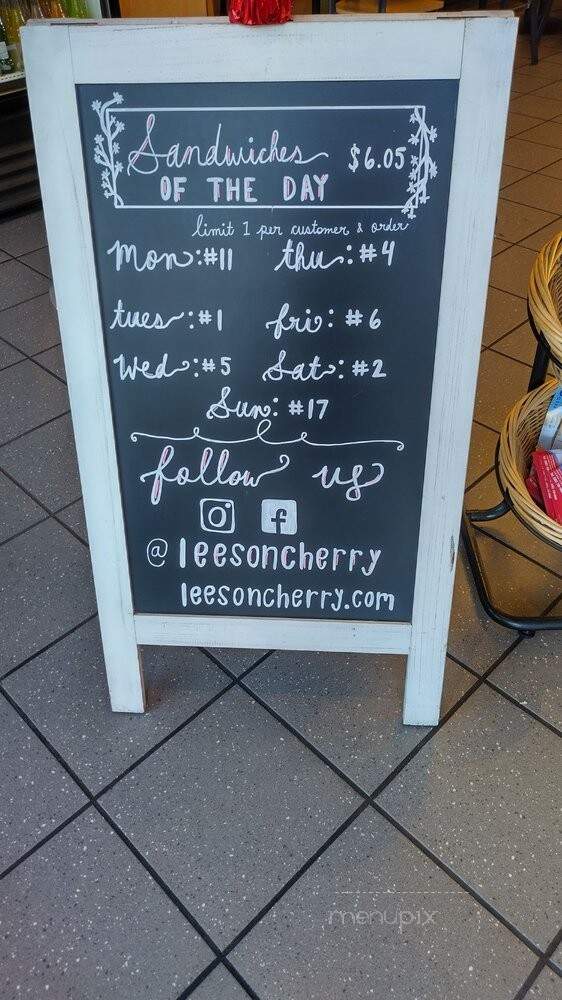 Sandwiches $6.05
OF THE DAY
limit 1 per customer & order
Mon: #11 thu: #4
tues: #1 fri: #6
Wed: #5 Sat: #2
Sun: #17
follow us
@leesoncherry
leesoncherry.com
menupix